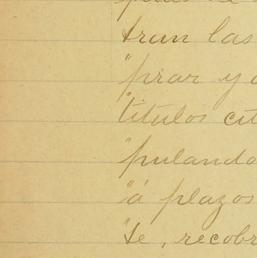 tran las
"prar y
"títulos
"pulando
"á plazos
"te, recobr